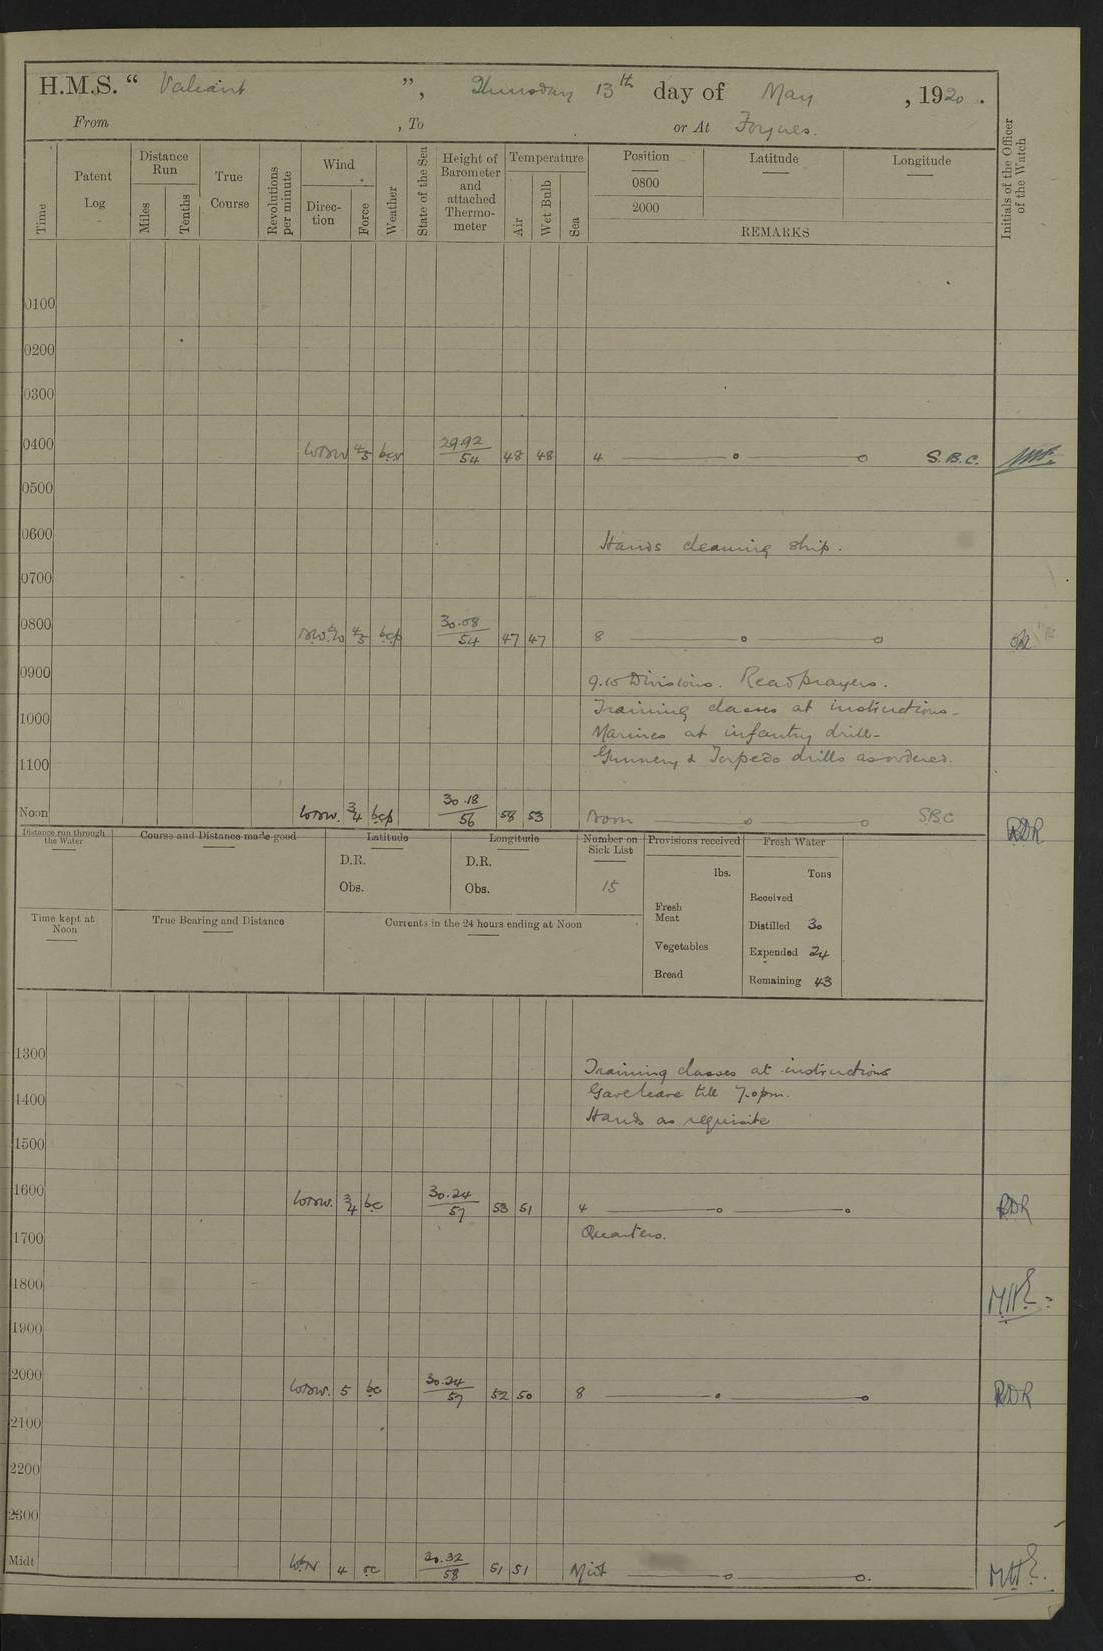 H.M.S. “ Valiant ”, Thursday 13th day of May, 1920.
From , To or At Foynes.
Time
Patent Log
Distance Run
Miles
Tenths
True Course
Revolutions per minute
Wind
Direction
Force
Weather
State of the Sea
Height of Barometer and attached Thermometer
Temperature
Air
Wet Bulb
Sea
Position Latitude Longitude
0800
2000
REMARKS
Initials of the Officer of the Watch
0100
0200
0300
0400 WNW 4/5 29.92/54 48 48 4 S.B.C.
0500
0600 Hands cleaning ship.
0700
0800 4/5 bcp 30.08/54 47 47 8
0900 9.10 Divisions. Read prayers.
1000 Training classes at instructions-
Marines at infantry drill-
1100 Gunnery & Torpedo drills as ordered.
Noon WNW. 3/4 bcp 30.18/56 58 53 Noon SBC RDR
Distance run through the Water
Course and Distance made good
Latitude
D.R.
Obs.
Longitude
D.R.
Obs.
Number on Sick List
15
Provisions received
lbs.
Fresh Meat
Vegetables
Bread
Fresh Water
Tons
Received
Distilled 30
Expended 24
Remaining 43
Time kept at Noon
True Bearing and Distance
Currents in the 24 hours ending at Noon
1300 Training classes at instructions
1400 Gave leave till 7.0pm.
Hands as requisite
1500
1600 WNW. 3/4 bc 30.24/57 53 51 4 RDR
1700 Quarters.
1800
1900
2000 WNW. 5 bc 30.24/57 52 50 8 RDR
2100
2200
2300
Midt 4 30.32/58 51 51 Midt